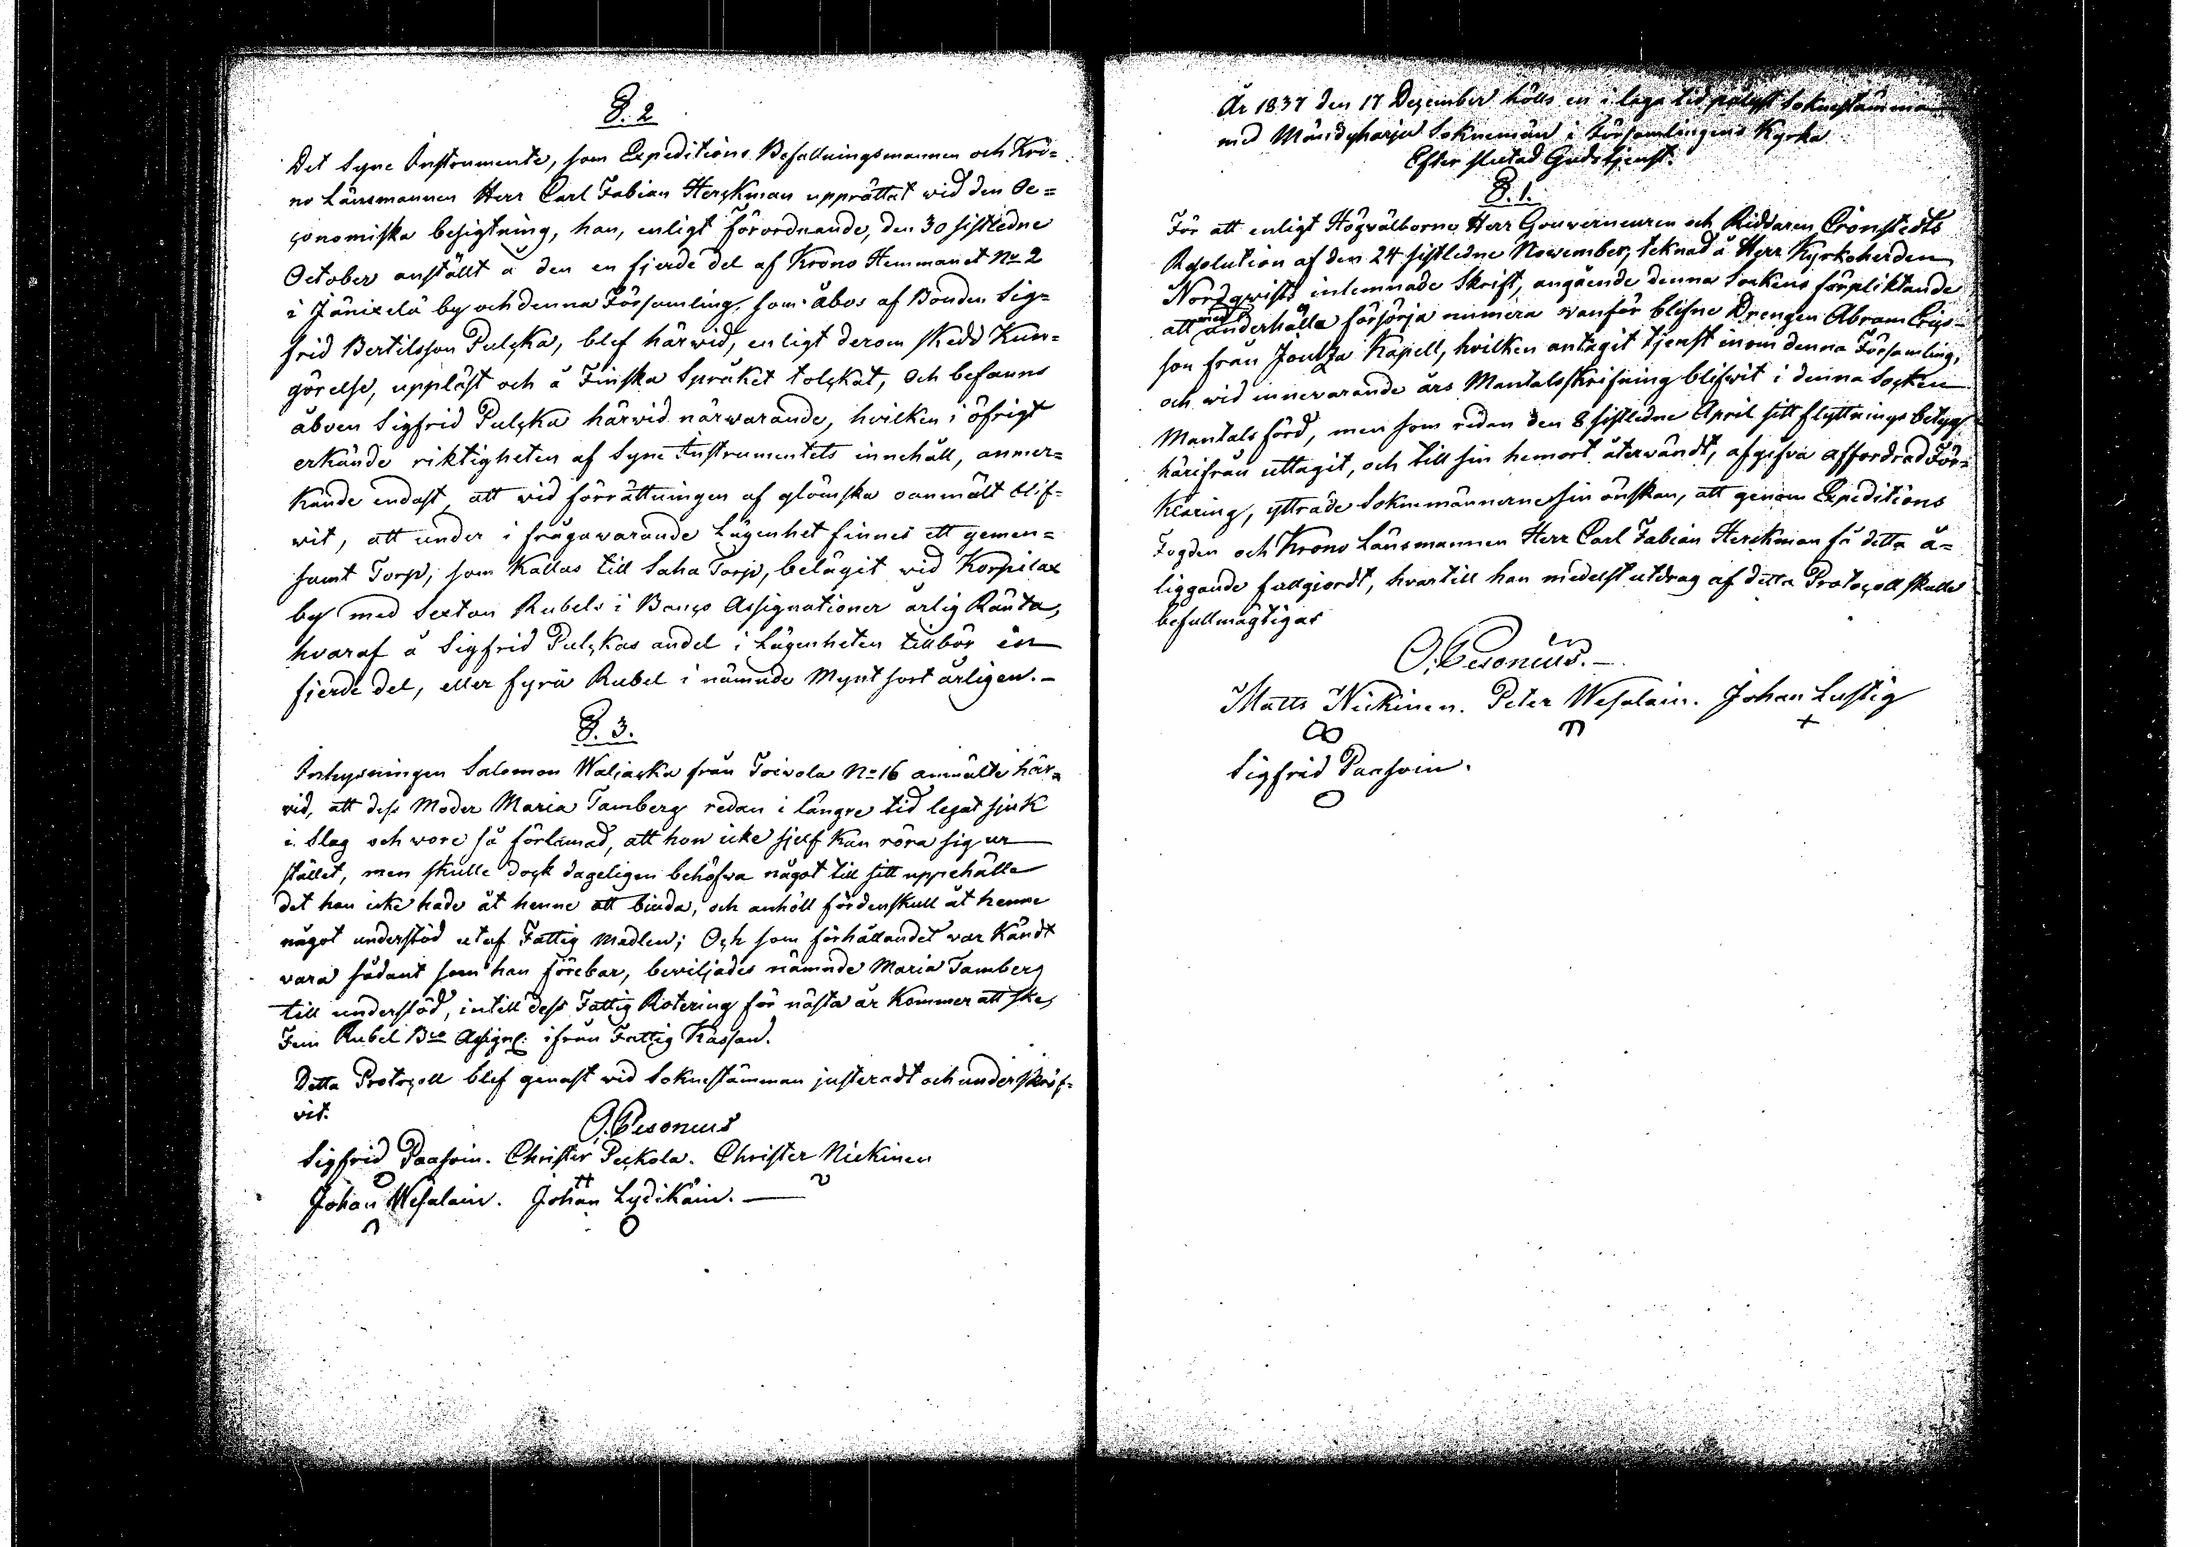 §. 2
Det Syne Instrumente, som Expeditions Befallningsmannen och Kro=
no Länsmannen Herr Carl Fabian Herckman upprättat wid den Oe=
conomiska besigtning, han, enligt Förordnande, den 30 sistledne
October anställt å den en fjerde del af Krono Hemmanet No 2
i by och denna Församling, som åbos af Bonden Sig=
frid Bertilsson Pulcka, blef härwid, enligt derom skedd Kun=
görelse, uppläst och å Finska Språket tolckat, och befanns
äbven Sigfrid Pulcka härwid närwarande, hvilken i öfrigt
erkände riktigheten af Syne Instrumentets innehåll, anmer=
kande endast, att wid förrättningen af glömska oanmält blif=
wit, att under i frågavarande Lägenhet finnes ett gemen=
samt Torp, som Kallas till Saha Torp, belägit wid Korpilax
by med Sexton Rubels i Banco Assignationer årlig Ränta,
hvaraf å Sigfrid Pulckas andel i Lägenheten tillbör en
fjerde del, eller fyra Rubel i nämnde Myntsort årligen.-
§. 3.
Inhysningen Salomon Waljacka från Toivola No 16 anmälte här=
vid, att dess Moder Maria Tamberg redan i längre tid legat sjuk
i Slag och wore så förlamad, att hon icke sjelf kan röra sig ur
stället, men skulle dock dageligen behöfva något till sitt uppehälle
det han icke hade åt henne att biuda, och anhöll fördenskull åt henne
något understöd utaf Fattig Medlen; Och som förhållandet war Kändt
vara sådant som han förebar, beviljades nämnde Maria Tamberg
till understöd, intill dess Fattig Rotering för nästa år Kommer att ske,
Fem Rubel Bco Assign: ifrån Fattig Kassan.
Detta Protocoll blef genast wid Soknestämman justeradt och underskrif=
vit.
O. Cesonius
Sigfrid Paasoin. Christer Peckola. Christer Nickinen
Johan Wesalain. Johan Lydikäin.
År 1837 den 17 Dezember hölls en i laga tid pålyst Soknestämma
med Mändyharju Soknemän i Församlingens Kyrka
Efter slutad Gudstjenst.
§. 1.
För att enligt Högvälborne Herr Gouverneuren och Riddaren Cronstedts
Resolution af den 24 sistledne November, teknad å Herr Kyrkoherden
Nordqwists inlemnade Skrift, angående denna Sockens förpliktande
att med underhålla försörja numera vanför blifne Drengen Abram
son från Joutza Kapell, hvilken antagit tjenst inom denna Församling,
och wid innevarande års Mantalsskrifning blifwit i denna Socken
Mantalsförd, men som redan den 8 sistledne April sitt flyttnings betyg
härifrån uttagit, och till sin hemort återwändt, afgifva affordrad För=
klaring, yttrade Soknemännerne sin önskan, att genom Expeditions
Fogden och Krono Länsmannen Herr Carl Fabian Herckman få detta å=
liggande fullgiordt, hvartill han medelst utdrag af detta Protocoll skulle
befullmägtigas
O. Cesonius.-
Matts Nickinen. Peter Wesalain. Johan Lustig
Sigfrid Paasoin.